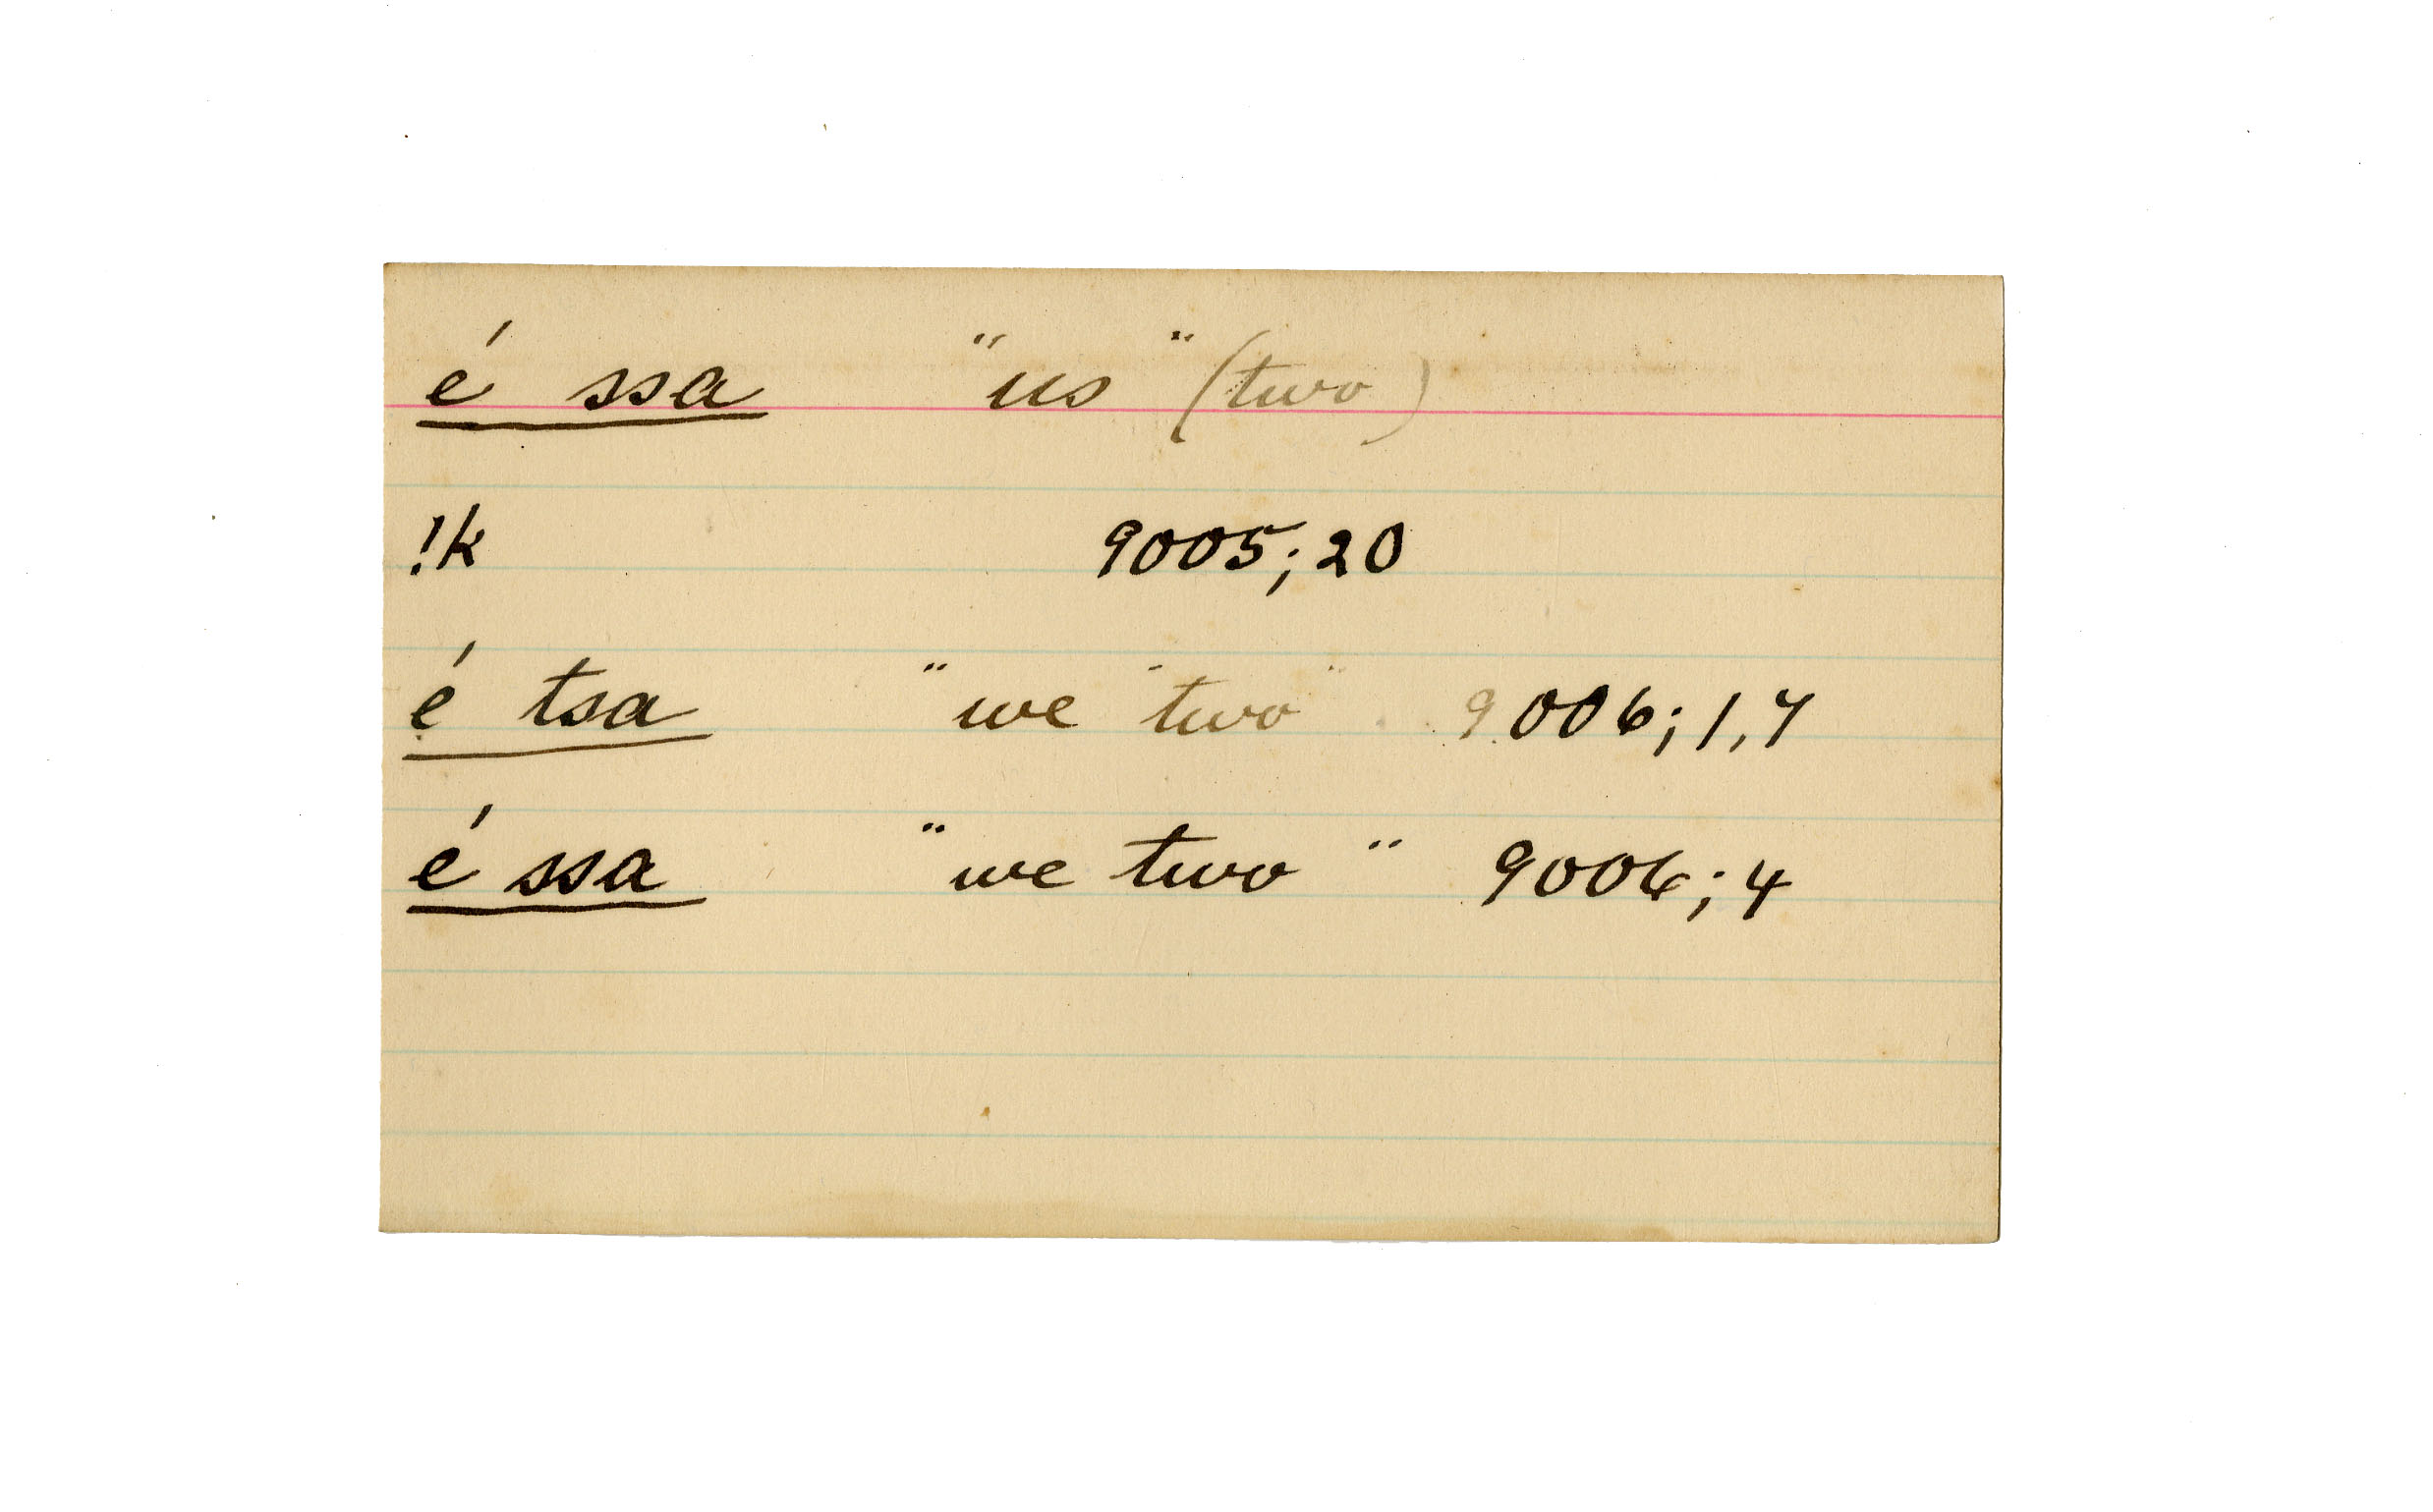 é ssa "us" (two)
!k 9005; 20
é tsa "we two" 9006; 1, 7
é ssa "we two" 9006; 4